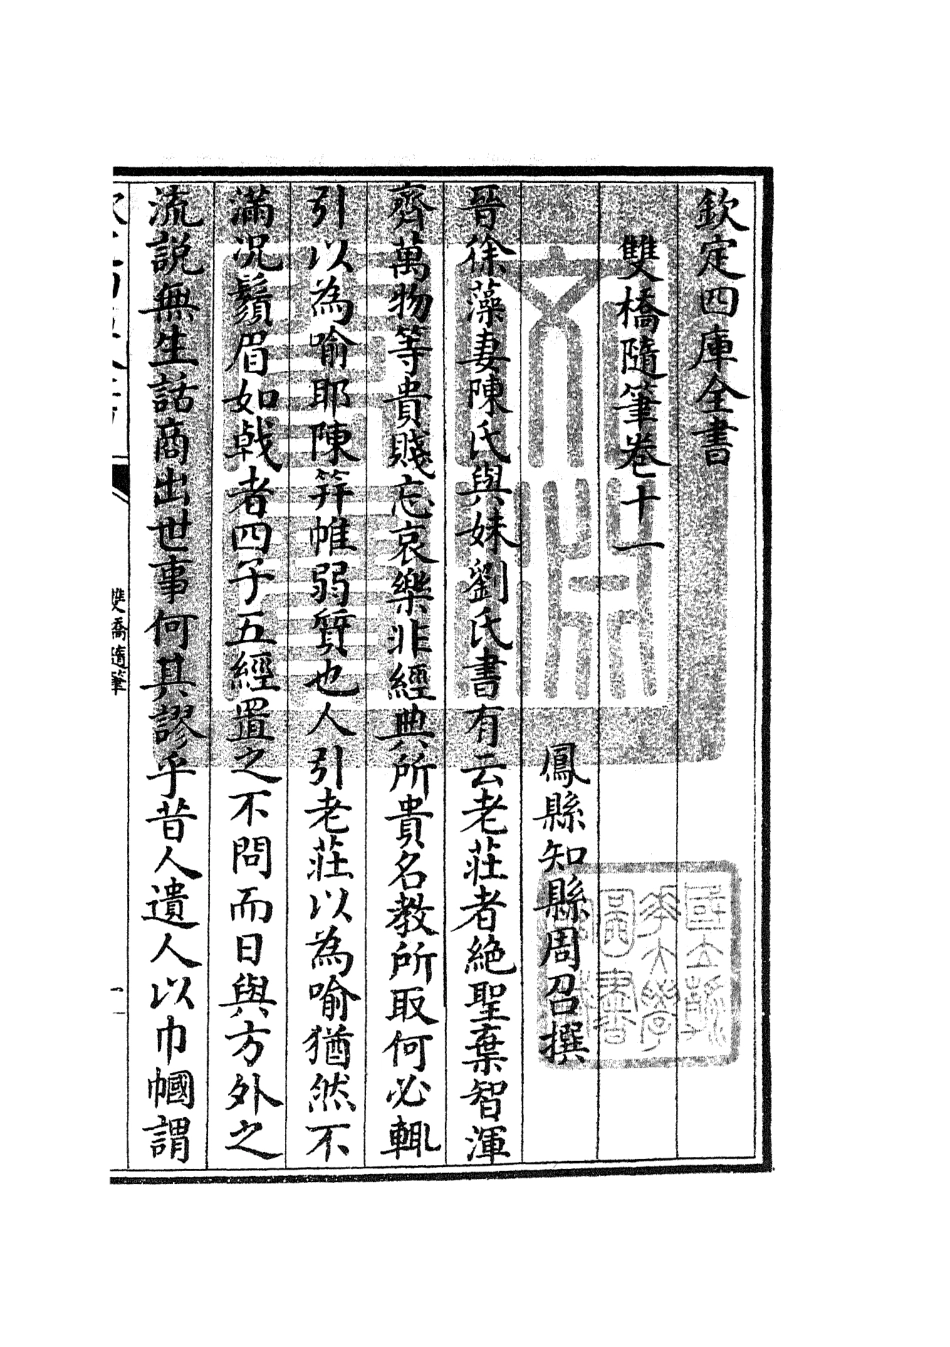 欽定四庫全書
雙橋隨筆卷十一
鳳縣知縣周召撰
晉徐藻妻陳氏與妹劉氏書有云老莊者絶聖棄智渾
齊萬物等貴賤忘哀樂非經典所貴名教所取何必輒
引以為喻耶陳笄帷弱質也人引老莊以為喻猶然不
滿況鬚眉如戟者四子五經置之不問而日與方外之
流説無生話商出世事何其謬乎昔人遺人以巾幗謂
雙橋隨筆
一